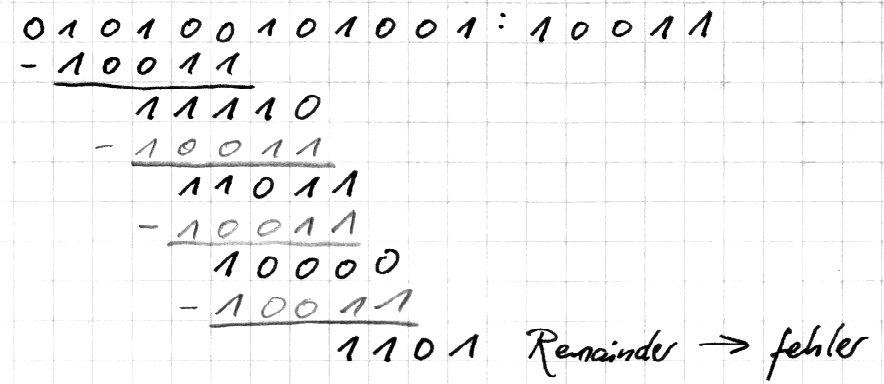 010100101001 : 10011
- 10011
11110
- 10011
11011
- 10011
10000
- 10011
1101 Remainder → fehler